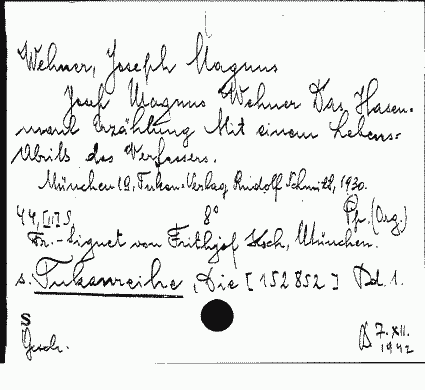 Wehner, Joseph Magnus
Josef Magnus Wehner Das Hasen-
maul Erzählung Mit einem Lebens-
Abriß des Verfassers.
München 19, Tukan-Verlag Rudolf Schmitt, 1930.
44, [II] S. 8° Pp. (Org.)
Tr.-Signet von Frithjof Koch, München.
s. Tukanreihe, Die [152852] Bd. 1.
S
Gesch. 7. XII.
1942